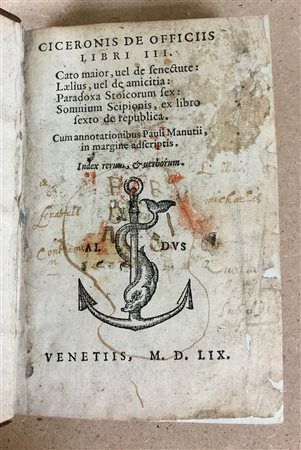 CICERONIS DE OFFICIIS
LIBRI III.
Cato maior, uel de senectute:
Lælius, uel de amicitia:
Paradoxa Stoicorum sex:
Somnium Scipionis, ex libro
sexto de republica.
Cum annotationibus Pauli Manutii,
in margine adscriptis.
Index rerum, & uerborum.
AL DVS
VENETIIS, M. D. LIX.